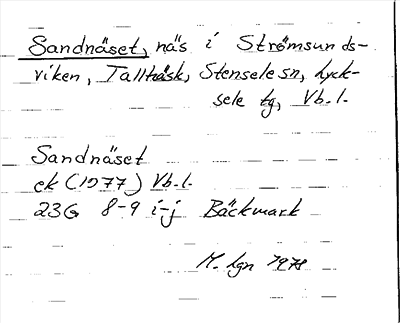 Sandnäset, näs i Strömsunds-
viken, Tallträsk, Stensele sn, Lyck-
sele tg, Vb.l.
Sandnäset
ek (1977) Vb.l.
23G 8-9 i-j Bäckmark
M. Lgn 1978